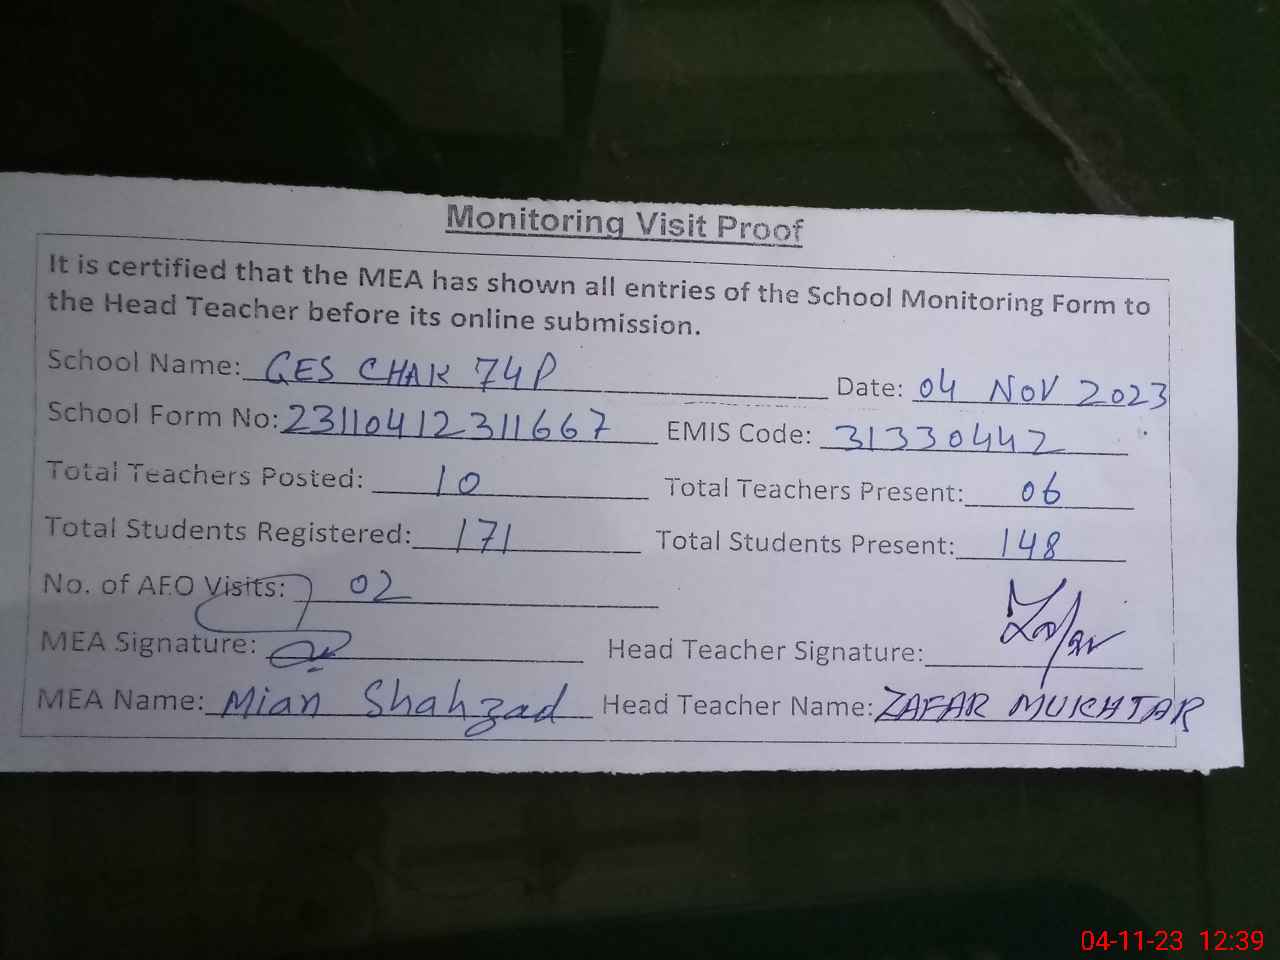 Monitoring Visit Proof
It is certified that the MEA has shown all entries of the School Monitoring Form to
the Head Teacher before its online submission.
School Name: GES CHAK 74P Date: 04 NOV 2023
School Form No: 23110412311667 EMIS Code: 31330442
Total Teachers Posted: 10 Total Teachers Present: 06
Total Students Registered: 171 Total Students Present: 148
No. of AEO Visits: 02
MEA Signature: Head Teacher Signature: Zafar
MEA Name: Mian Shahzad Head Teacher Name: ZAFAR MUKHTAR
04-11-23 12:39